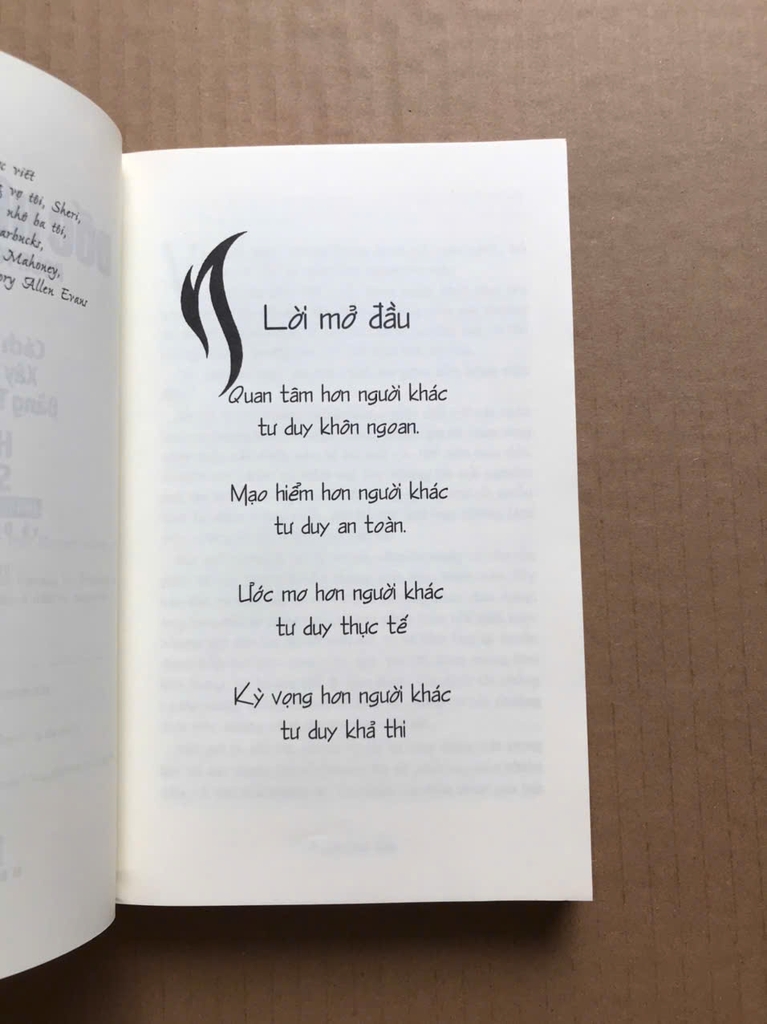 viết
vợ tôi, Sheri,
nhờ ba tôi,
Mahoney,
Allen Evans
Lời mở đầu
Quan tâm hơn người khác
tư duy khôn ngoan.
Mạo hiểm hơn người khác
tư duy an toàn.
Ước mơ hơn người khác
tư duy thực tế
Kỳ vọng hơn người khác
tư duy khả thi